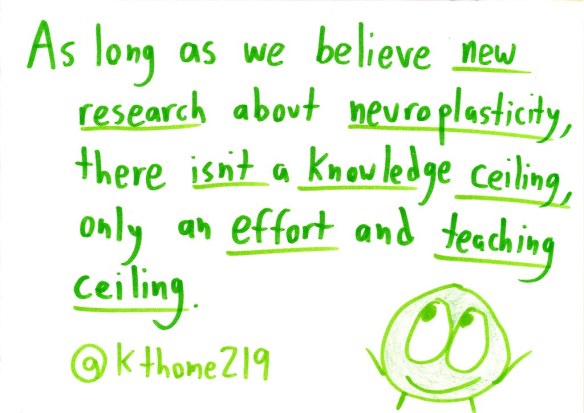 As long as we believe new
research about neuroplasticity,
there isn't a knowledge ceiling,
only an effort and teaching
ceiling.
@kthome219